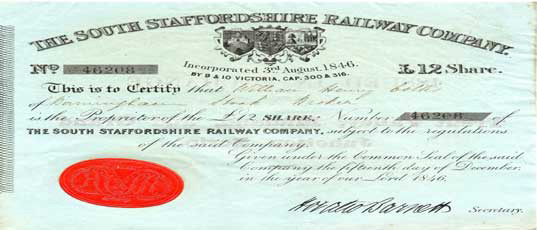 THE SOUTH STAFFORDSHIRE RAILWAY COMPANY.
Incorporated 3rd August, 1846.
BY 9 & 10 VICTORIA, CAP. 300 & 316.
No 46208 £12 Share.
This is to Certify that William Henry
of Birmingham Share Broker
is the Proprietor of the £12 SHARE, Number 46208 of
THE SOUTH STAFFORDSHIRE RAILWAY COMPANY, subject to the regulations
of the said Company.
Given under the Common Seal of the said
Company the fifteenth day of December,
in the year of our Lord 1846.
Horatio Barnett Secretary.